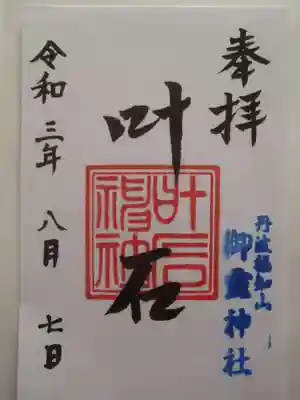 奉拝
丹波福知山
御霊神社
叶石
叶石神社
令和三年八月七日